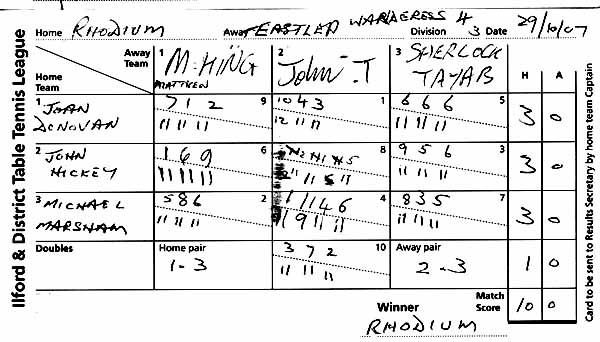 Ilford & District Table Tennis League
Home RHODIUM Away EASTLED WANDERESS 4 Division 3 Date 29/10/07
Away Team 1 M. KING MATTHEW 2 John .T 3 SHERLOCK TAYAB H A
Home Team
1 JOAN DONOVAN 7 1 2 9 10 4 3 1 6 6 6 5 3 0
11 11 11 12 11 11 11 11 11
2 JOHN HICKEY 1 6 9 6 8 9 5 6 3 3 0
11 11 11 11 11 11
3 MICHAEL MARSHAM 5 8 6 2 4 8 3 5 7 3 0
11 11 11 11 9 11 11 11 11 11
Doubles Home pair 1-3 3 7 2 10 Away pair 2-3 1 0
11 11 11
Winner RHODIUM Match Score 10 0
Card to be sent to Results Secretary by home team Captain